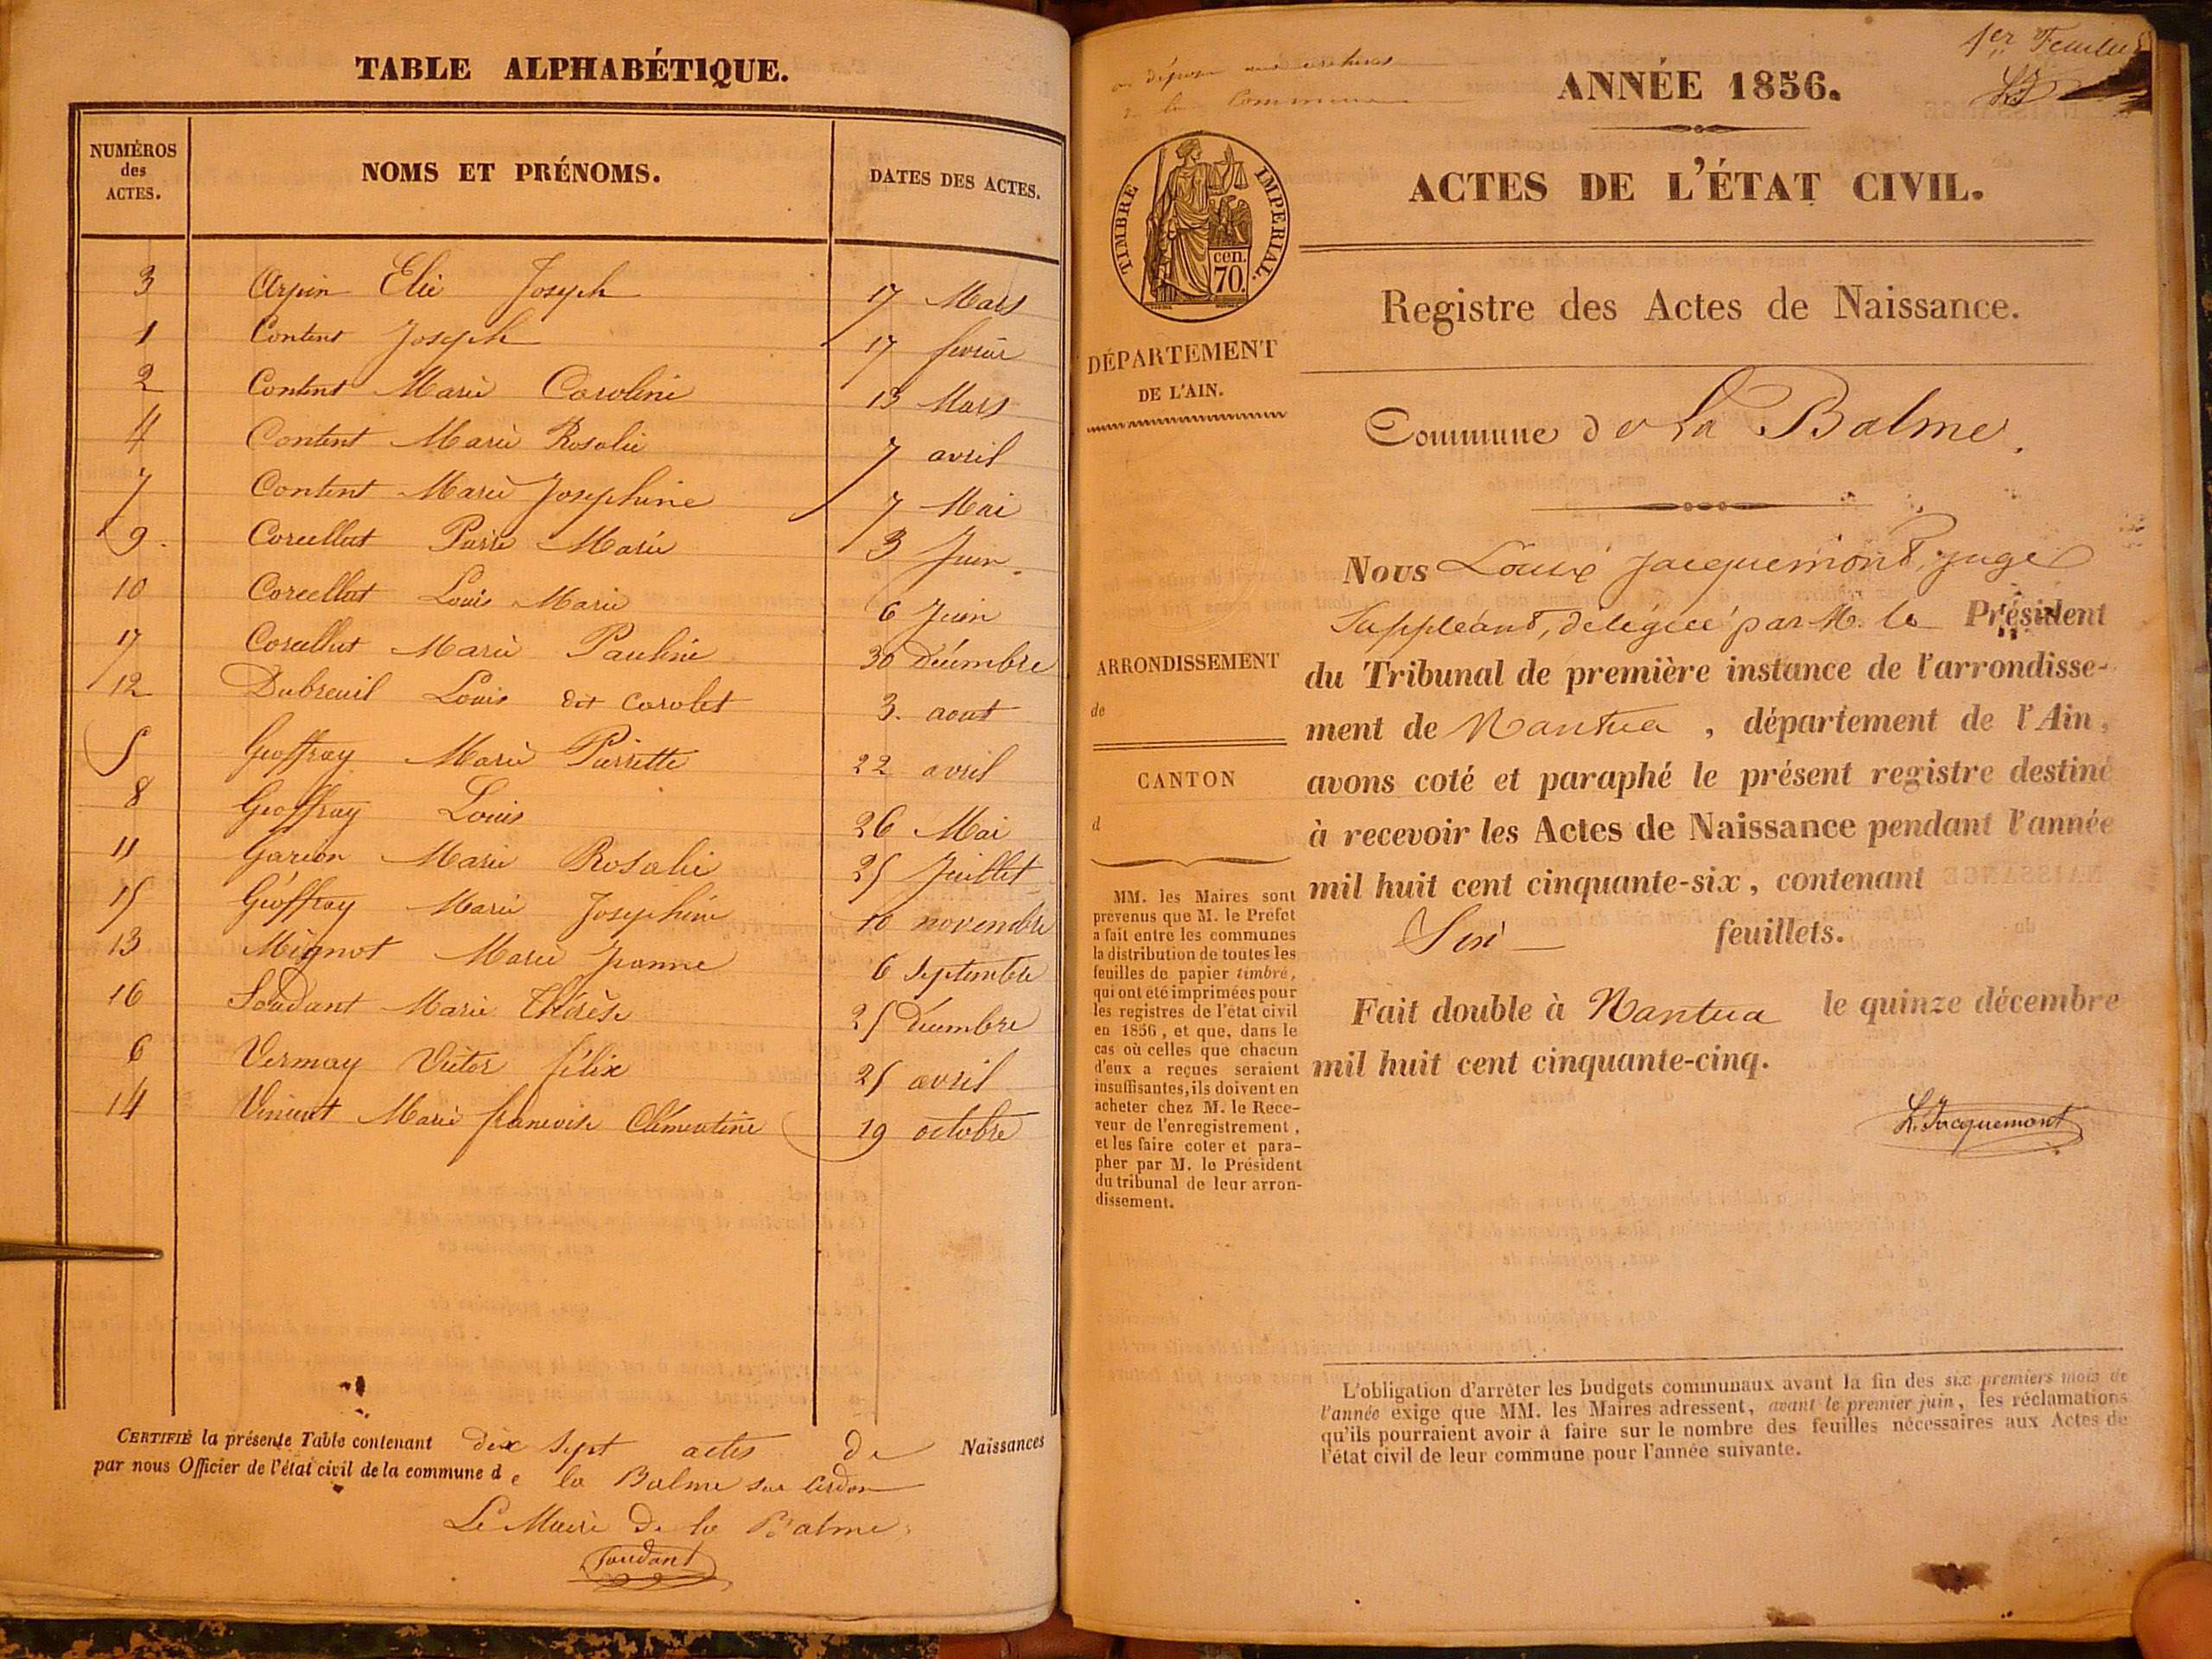 TABLE ALPHABÉTIQUE.
NUMÉROS des ACTES. NOMS ET PRÉNOMS. DATES DES ACTES.
3 Arpin Elie Joseph 17 Mars
1 Content Joseph 17 fevrier
2 Content Marie Caroline 13 Mars
4 Content Marie Rosalie 7 avril
7 Content Marie Josephine 7 Mai
9. Corcellut Pierre Marie 3 Juin.
10 Corcellut Louis Marie 6 Juin
17 Corcellut Marie Pauline 30 Décembre
12 Dubreuil Louis dit Carolet 3. aout
5 Geoffray Marie Pierrette 22 avril
8 Geoffray Louis 26 Mai
11 Garion Marie Rosalie 25 Juillet
15 Géoffray Marie Josephine 10 novembre
13 Mignot Marie Jeanne 6 Septembre
16 Soudant Marie Thérèse 25 Décembre
6 Vermay Victor félix 25 avril
14 Vincent Marie francoise Clémentine 19 octobre
CERTIFIÉ la présente Table contenant dix sept actes de Naissances
par nous Officier de l'état civil de la commune de la Balme sur Cerdon
Le Maire de la Balme
Soudant
1er Feuillet
déposer aux archives
de la Commune
ANNÉE 1856.
ACTES DE L'ÉTAT CIVIL.
TIMBRE IMPERIAL.
cen.
70.
Registre des Actes de Naissance.
DÉPARTEMENT
DE L'AIN.
Commune de La Balme.
Nous Louis Jacquemont, juge
Suppléant, délégué par M. le Président
du Tribunal de première instance de l'arrondisse-
ment de Nantua, département de l'Ain,
avons coté et paraphé le présent registre destiné
à recevoir les Actes de Naissance pendant l'année
mil huit cent cinquante-six, contenant
Six feuillets.
Fait double à Nantua le quinze décembre
mil huit cent cinquante-cinq.
L. Jacquemont
ARRONDISSEMENT
de
CANTON
d
MM. les Maires sont
prévenus que M. le Préfet
a fait entre les communes
la distribution de toutes les
feuilles de papier timbré,
qui ont été imprimées pour
les registres de l'état civil
en 1856, et que, dans le
cas où celles que chacun
d'eux a reçues seraient
insuffisantes, ils doivent en
acheter chez M. le Rece-
veur de l'enregistrement,
et les faire coter et para-
pher par M. le Président
du tribunal de leur arron-
dissement.
L'obligation d'arrêter les budgets communaux avant la fin des six premiers mois de
l'année exige que MM. les Maires adressent, avant le premier juin, les réclamations
qu'ils pourraient avoir à faire sur le nombre des feuilles nécessaires aux Actes de
l'état civil de leur commune pour l'année suivante.